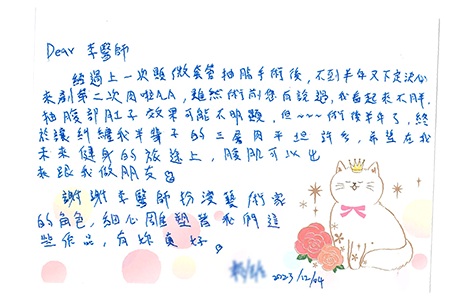 Dear 李醫師
經過上一次顯微套管抽脂手術後,不到半年又下定決心
來刷第二次肉啦AA,雖然術前您有說過,我看起來不胖,
抽腹部肚子效果可能不明顯,但~~~術後半年了,終
於讓糾纏我半輩子的三層肉平坦許多,希望在我
未來健身的旅途上,腹肌可以出
來跟我做朋友
謝謝李醫師扮演藝術家
的角色,細心雕塑著我們這
些作品,有妳真好。
2023/12/04